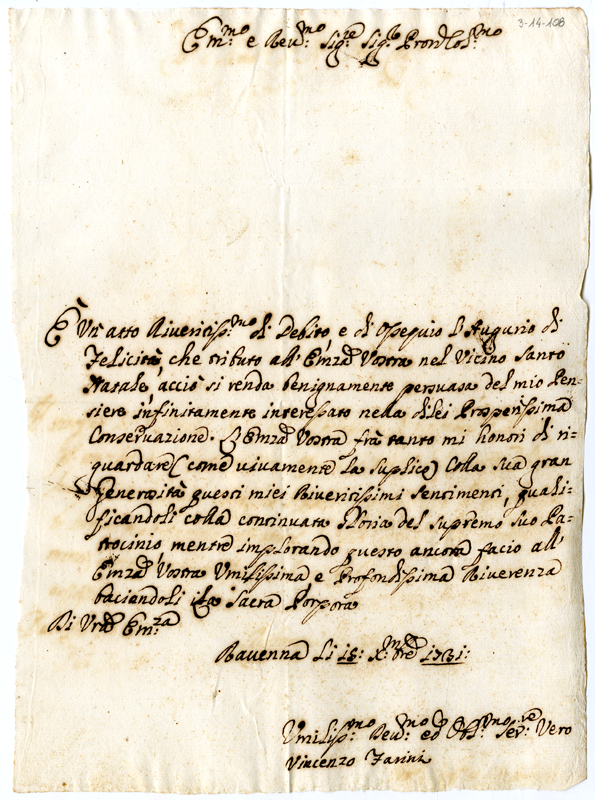 3-14-108
Em:mo e Reu:mo Sig:re Sig:re Pron Col:mo
È Un atto Riueritiss:mo di Debito, e di Ossequio L'Augurio di
Felicità, che tributo all' Emza Vostra nel Vicino Santo
Natale, acciò si renda benignamente persuasa del mio Pen=
siere infinitamente interessato nella di lei Prosperissima
Conseruazione. L'Emza Vostra frà tanto mi honori di ri=
guardare (come uiuamente la suplico) Colla sua gran
Generosità questi miei Riueritissimi Sentimenti, quali=
ficandoli colla continuata Gloria del supremo suo Pa=
trocinio, mentre implorando questo ancora facio all'
Emza Vostra Umilissima e Profondissima Riuerenza
baciandoli La Sacra Porpora
Di Vra Em:za
Rauenna Li 15: X:mbre 1731:
Umiliss:mo Deu:mo ed Obb:mo Ser:re Vero
Vincenzo Farini